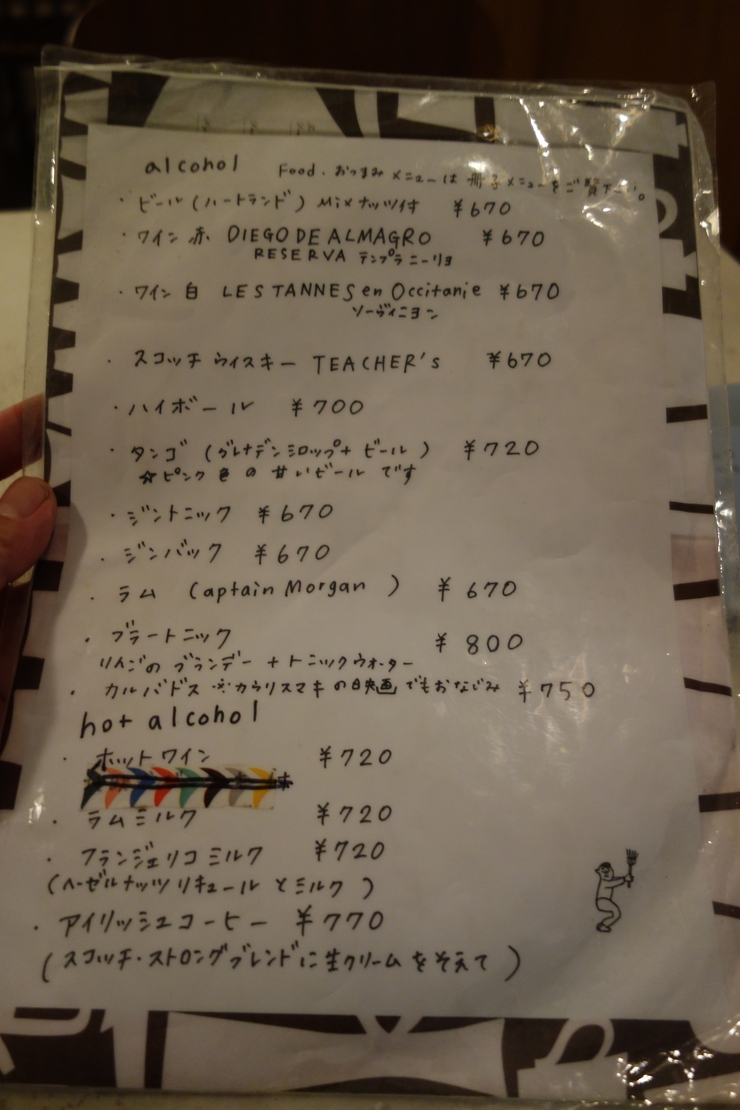 alcohol Food・おつまみメニューは 冊子メニューをご覧下さい。
・ビール(ハートランド) Mixナッツ付 ¥670
・ワイン 赤 DIEGO DE ALMAGRO ¥670
RESERVA テンプラニーリョ
・ワイン 白 LES TANNES en Occitanie ¥670
ソーヴィニヨン
・スコッチ ウイスキー TEACHER's ¥670
・ハイボール ¥700
・タンゴ (グレナデンシロップ+ビール) ¥720
☆ピンク色の甘いビールです
・ジントニック ¥670
・ジンバック ¥670
・ラム (Captain Morgan) ¥670
・ブラートニック ¥800
りんごのブランデー+トニックウォーター
・カルバドス ※カウリスマキの映画でもおなじみ ¥750
hot alcohol
・ホットワイン ¥720
・ラムミルク ¥720
・フランジェリコミルク ¥720
(ヘーゼルナッツリキュールとミルク)
・アイリッシュコーヒー ¥770
(スコッチ・ストロングブレンドに生クリームをそえて)